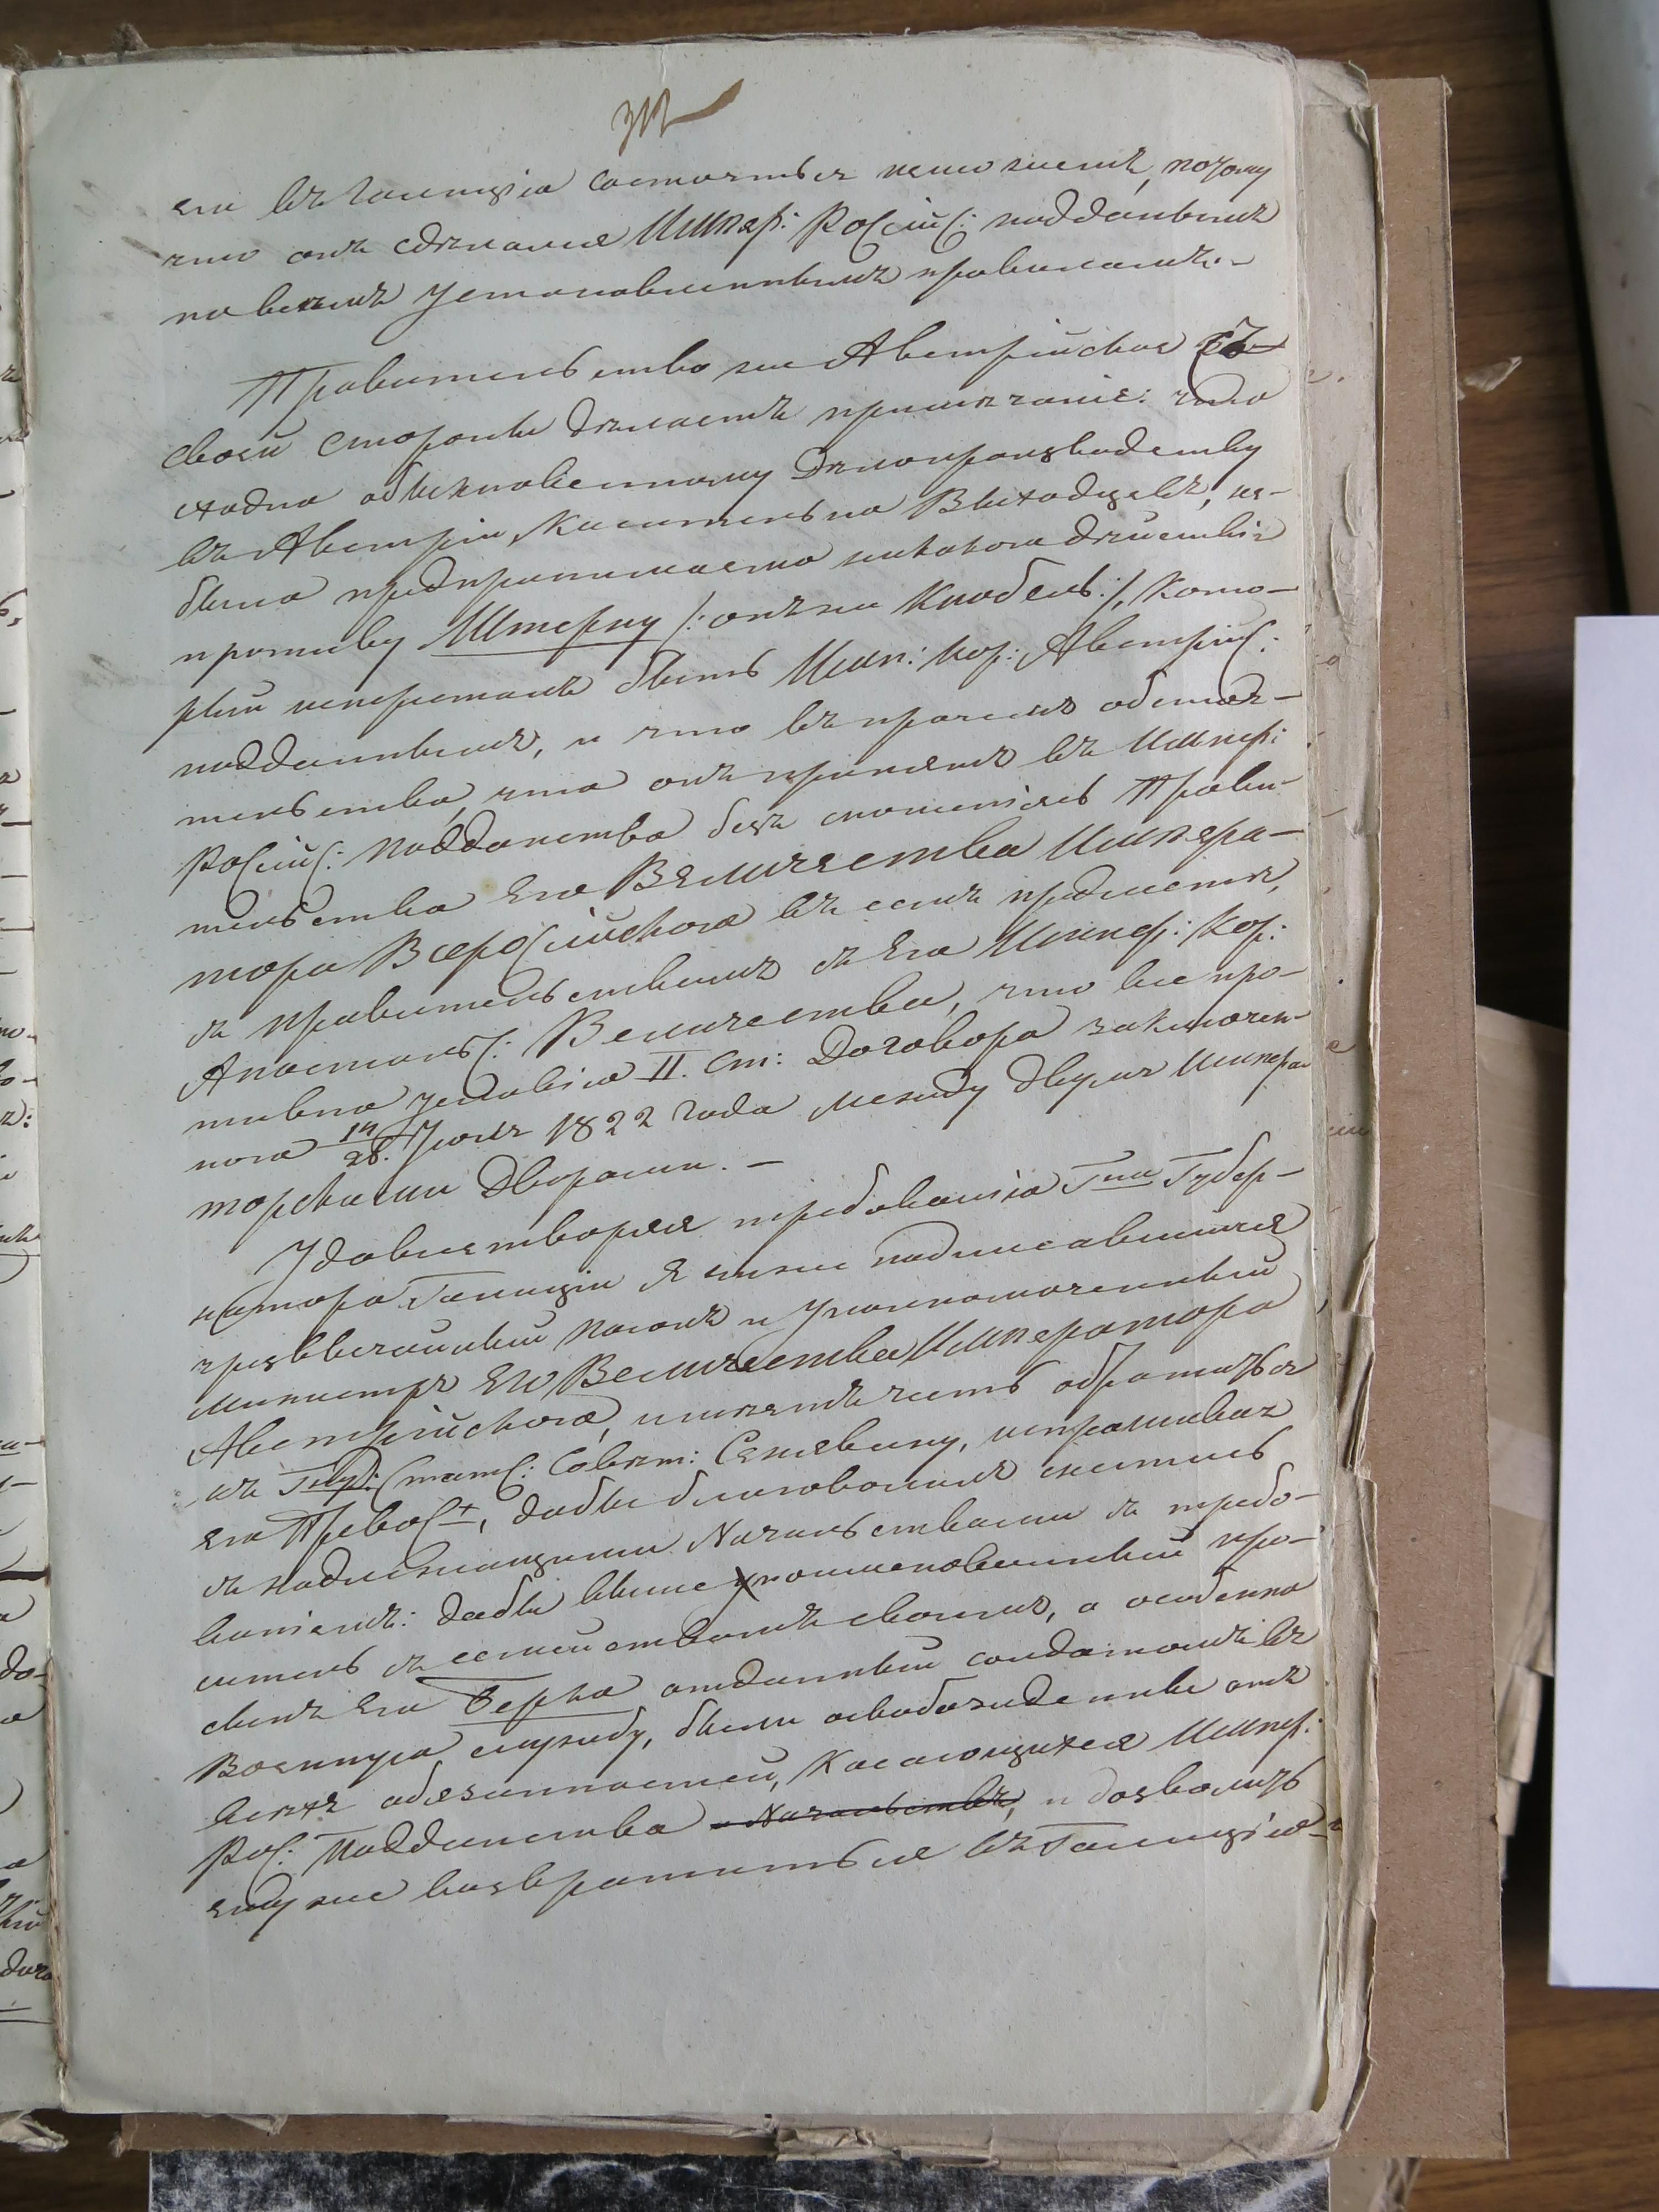 его въ Галицію состояться не можетъ, потому
что онъ сдѣлался Импер: Россійс: подданнымъ
по всѣмъ установленнымъ правиламъ.—
Правительство же Австрійское съ
своей стороны дѣлаетъ примѣчаніе: что
сходно обыкновенному Дѣлопроизводству
въ Австріи, касательно Выходцевъ, не-
было предпринимаемо никакого дѣйствія
противу Штерну /: онъ же Кнобель :/, кото-
рый непересталъ быть Имп: Кор: Австрійс:
подданнымъ, и что въ прочемъ обстоя-
тельство, что онъ принятъ въ Импер:
Россійс: подданство безъ сношенія съ Прави-
тельствомъ Его Величества Импера-
тора Всероссійского въ семъ предметѣ,
съ правительствомъ съ Его Импер: Кор:
Апостольс: Величества, что все про-
тивно условію II. ст: Договора заключен-
ного 14/26. Іюля 1822 года между двумя Импера
торскими Дворами. —
Удовлетворяя требованію Гна Губер-
натора Галиціи Я ниже подписавшійся
чрезвычайный посолъ и Уполномоченный
министръ Его Величества Императора
Австрійского, имѣетъ честь обратиться
къ Гну Д: Статс: Совѣт: Сенявину, испрашивая
его Превос:, дабы благоволилъ снестись
съ надлежащими Начальствами съ требо-
ваніемъ: дабы выше поименованный про-
ситель съ семействомъ своимъ, а особенно
сынъ его Берко отданный солдатомъ въ
Военную службу, были освобождены отъ
всѣхъ обязанностей, касающихся Импер:
Рос: Подданства Начальствъ, и дозволить
ему же возвратиться въ Галицію